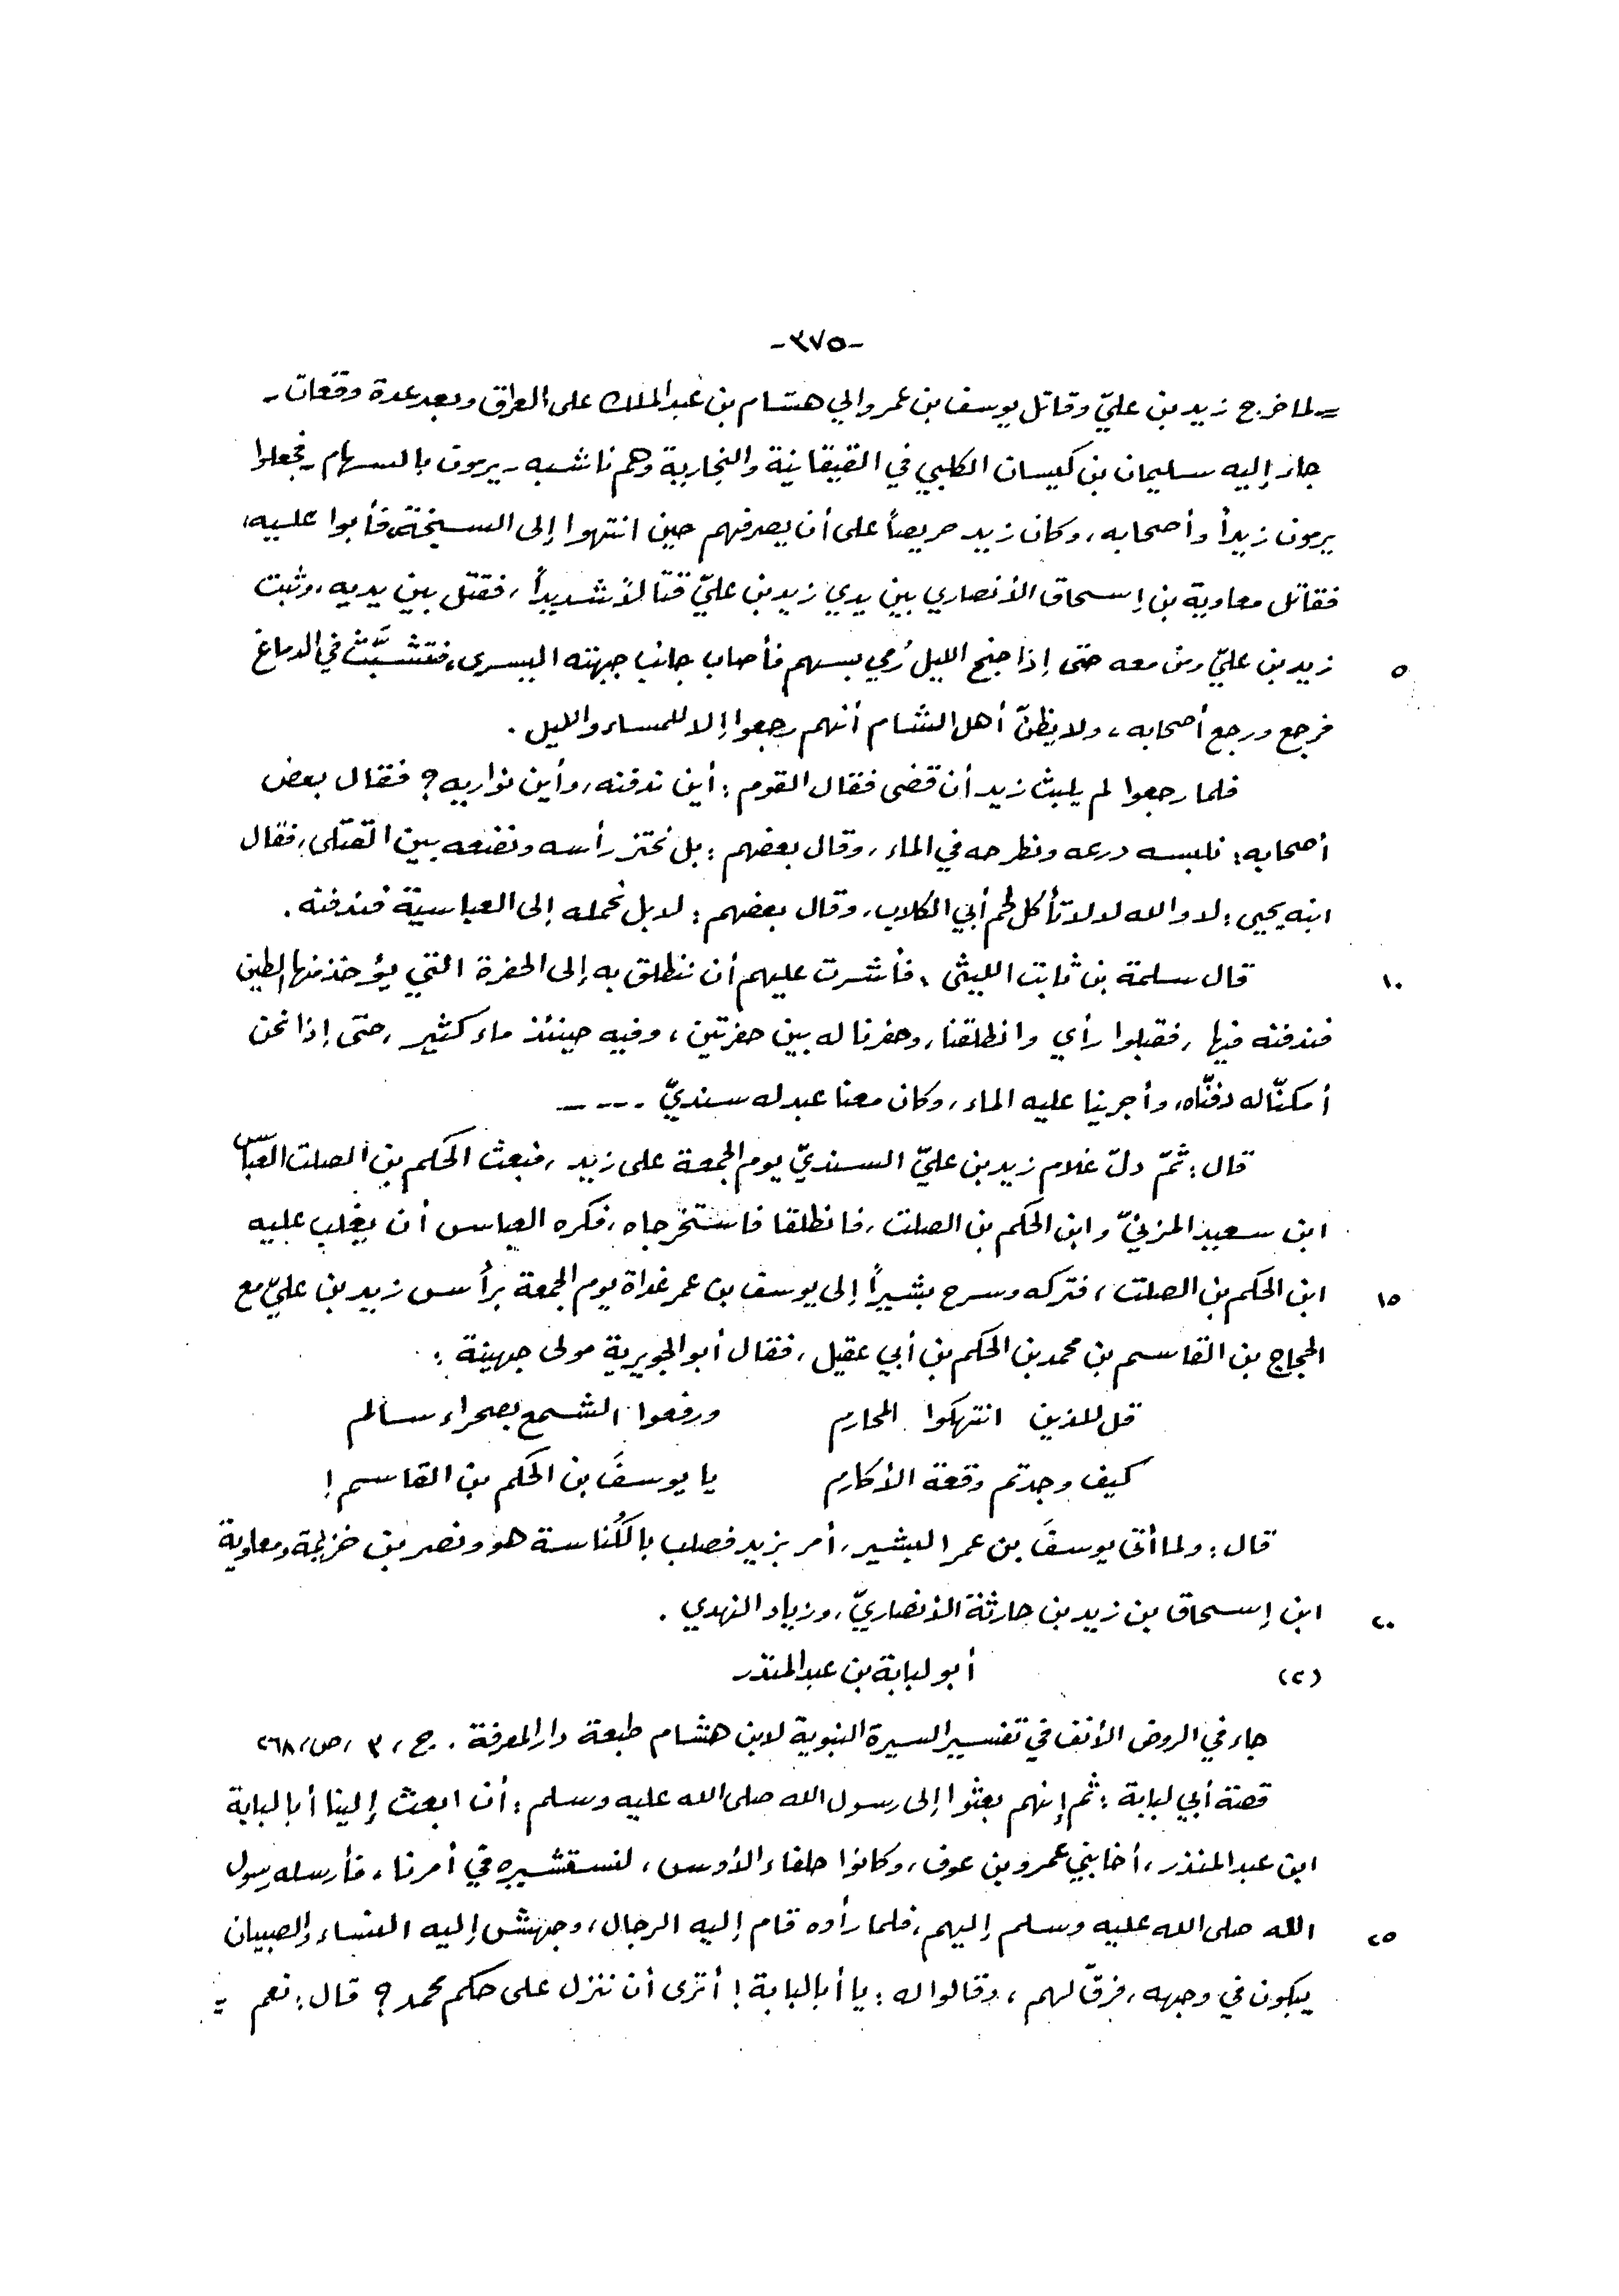 -٣٧٥-
= لما خرج زيد بن عليّ وقاتل يوسف بن عمر والي هشام بن عبد الملك على العراق وبعد عدة وقعات -
جاء إليه سليمان بن كيسان الكلبي في القيقانية والبخارية وهم ناشبه - يرمون بالسهام - فجعلوا
يرمون زيداً وأصحابه، وكان زيد حريصاً على أن يصرفهم حين انتهوا إلى السبخة، فأبوا عليه،
فقاتل معاوية بن إسحاق الأنصاري بين يدي زيد بن عليّ قتالاً شديداً، فقتل بين يديه، وثبت
٥ زيد بن عليّ ومن معه حتى إذا جنح الليل رُمي بسهم فأصاب جانب جبهته اليسرى، فتشبَّث في الدماغ
فرجع ورجع أصحابه، ولا يظنّ أهل الشام أنهم رجعوا إلا للمساء والليل.
فلما رجعوا لم يلبث زيد أن قضى فقال القوم: أين ندفنه، وأين نواريه؟ فقال بعض
أصحابه: نلبسه درعه ونطرحه في الماء، وقال بعضهم: بل نحتز رأسه ونضعه بين القتلى، فقال
ابنه يحيى: لا والله لا لا تأكل لحم أبي الكلاب، وقال بعضهم: لا بل نحمله إلى العباسيّة فندفنه.
١٠ قال سلمة بن ثابت الليثي، فأشرت عليهم أن ننطلق به إلى الحفرة التي يؤخذ منها الطين
فندفنه فيها، فقبلوا رأي وانطلقنا، وحفرنا له بين حفرتين، وفيه حينئذ ماء كثير، حتى إذا نحن
أمكنّا له دفنّاه، وأجرينا عليه الماء، وكان معنا عبد له سنديّ ----
قال: ثمّ دلّ غلام زيد بن عليّ السنديّ يوم الجمعة على زيد، فبعث الحكم بن الصلت العباس
ابن سعيد المزنيّ وابن الحكم بن الصلت، فانطلقا فاستخرجاه، فكره العباس أن يغلب عليه
١٥ ابن الحكم بن الصلت، فتركه وسرح بشيراً إلى يوسف بن عمر غداة يوم الجمعة برأس زيد بن عليّ مع
الحجاج بن القاسم بن محمد بن الحكم بن أبي عقيل، فقال أبو الجويرية مولى جهينة:
قل للذين انتهكوا المحارم ورفعوا الشمع بصحراء سالم
كيف وجدتم وقعة الأكارم يا يوسفَ بن الحكم بن القاسم!
قال: ولما أتى يوسفَ بن عمر البشير، أمر بزيد فصلب بالكُناسة هو ونصر بن خزيمة ومعاوية
٢٠ ابن إسحاق بن زيد بن حارثة الأنصاريّ، وزياد النهدي.
(٢) أبو لبابة بن عبد المنذر
جاء في الروض الأنف في تفسير السيرة النبوية لابن هشام طبعة دار المعرفة. ج، ٣، ص، ٢٦٨
قصة أبي لبابة: ثم إنهم بعثوا إلى رسول الله صلى الله عليه وسلم: أن ابعث إلينا أبا لبابة
ابن عبد المنذر، أخا بني عمرو بن عوف، وكانوا حلفاء الأوس، لنستشيره في أمرنا، فأرسله رسول
٢٥ الله صلى الله عليه وسلم إليهم، فلما رأوه قام إليه الرجال، وجهش إليه النساء والصبيان
يبكون في وجهه، فرقّ لهم، وقالوا له: يا أبا لبابة! أترى أن ننزل على حكم محمد؟ قال: نعم =